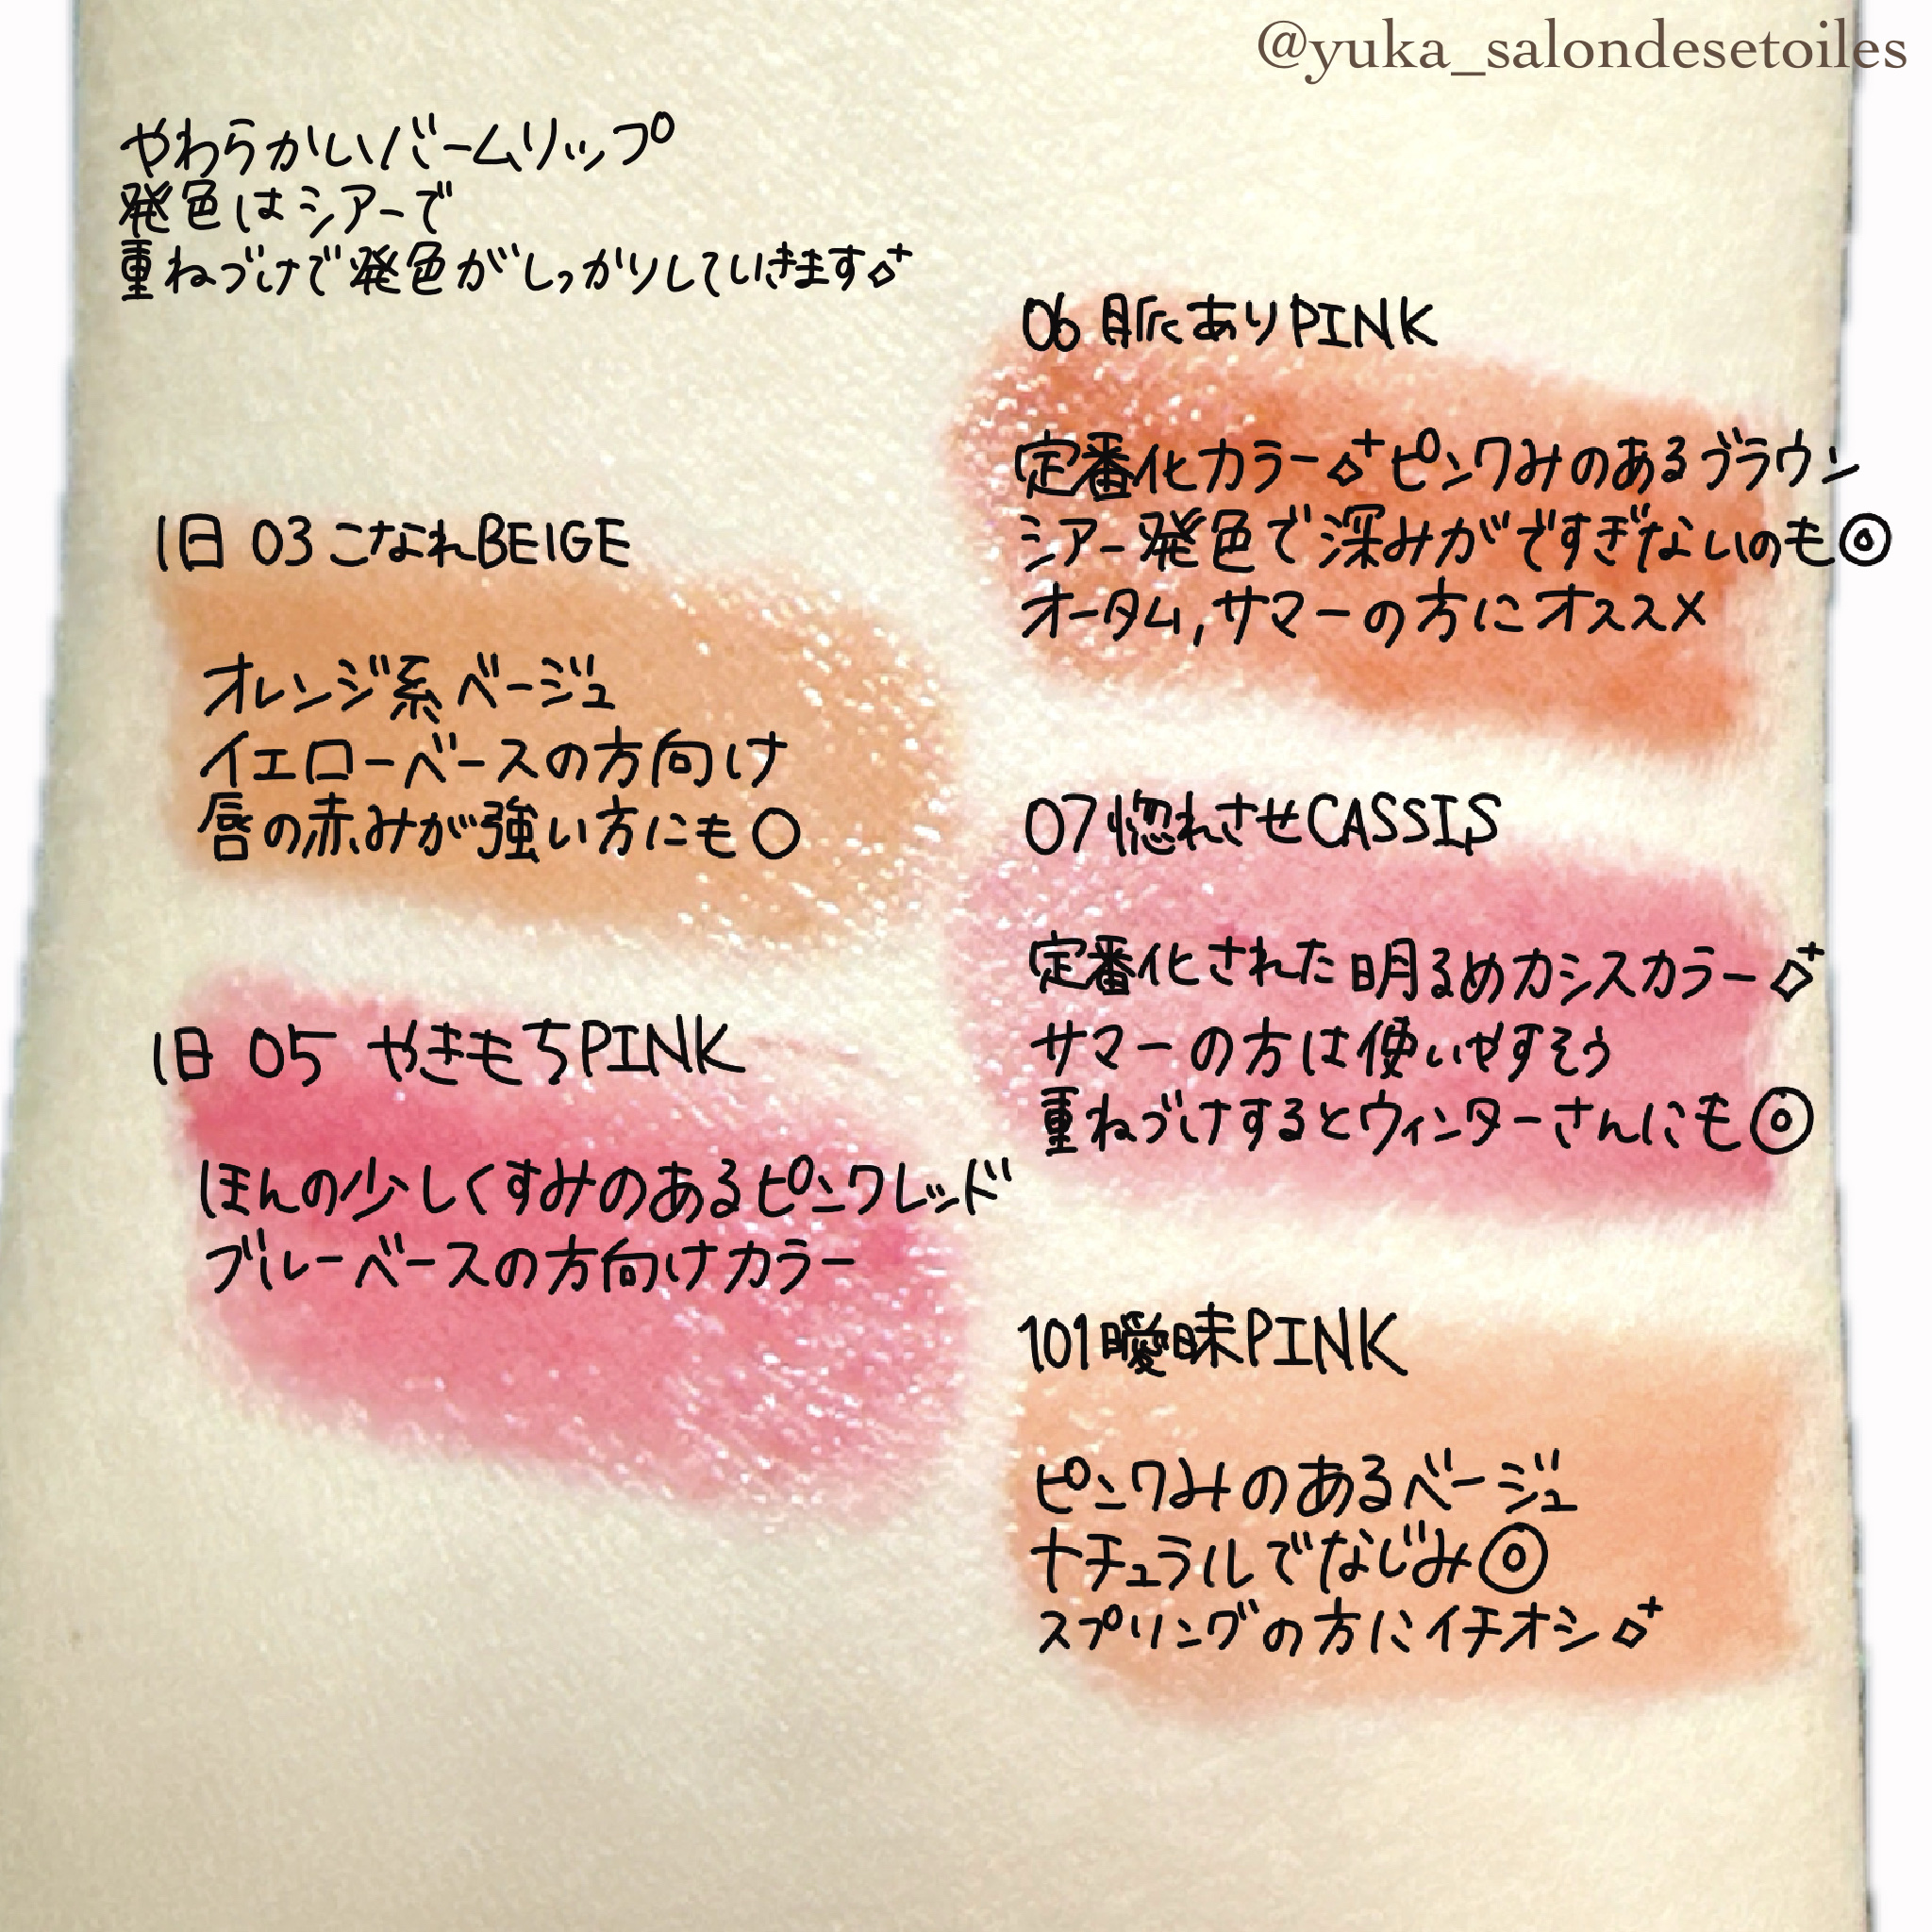 @yuka_salondesetoiles
やわらかいバームリップ
発色はシアーで
重ねづけで発色がしっかりしていきます
旧 03 こなれBEIGE
オレンジ系ベージュ
イエローベースの方向け
唇の赤みが強い方にも○
旧 05 やきもちPINK
ほんの少しくすみのあるピンクレッド
ブルーベースの方向けカラー
06 脈ありPINK
定番化カラー ピンクみのあるブラウン
シアー発色で深みがですぎないのも◎
オータム,サマーの方にオススメ
07 惚れさせCASSIS
定番化された明るめカシスカラー
サマーの方は使いやすそう
重ねづけするとウィンターさんにも◎
101 曖昧PINK
ピンクみのあるベージュ
ナチュラルでなじみ◎
スプリングの方にイチオシ